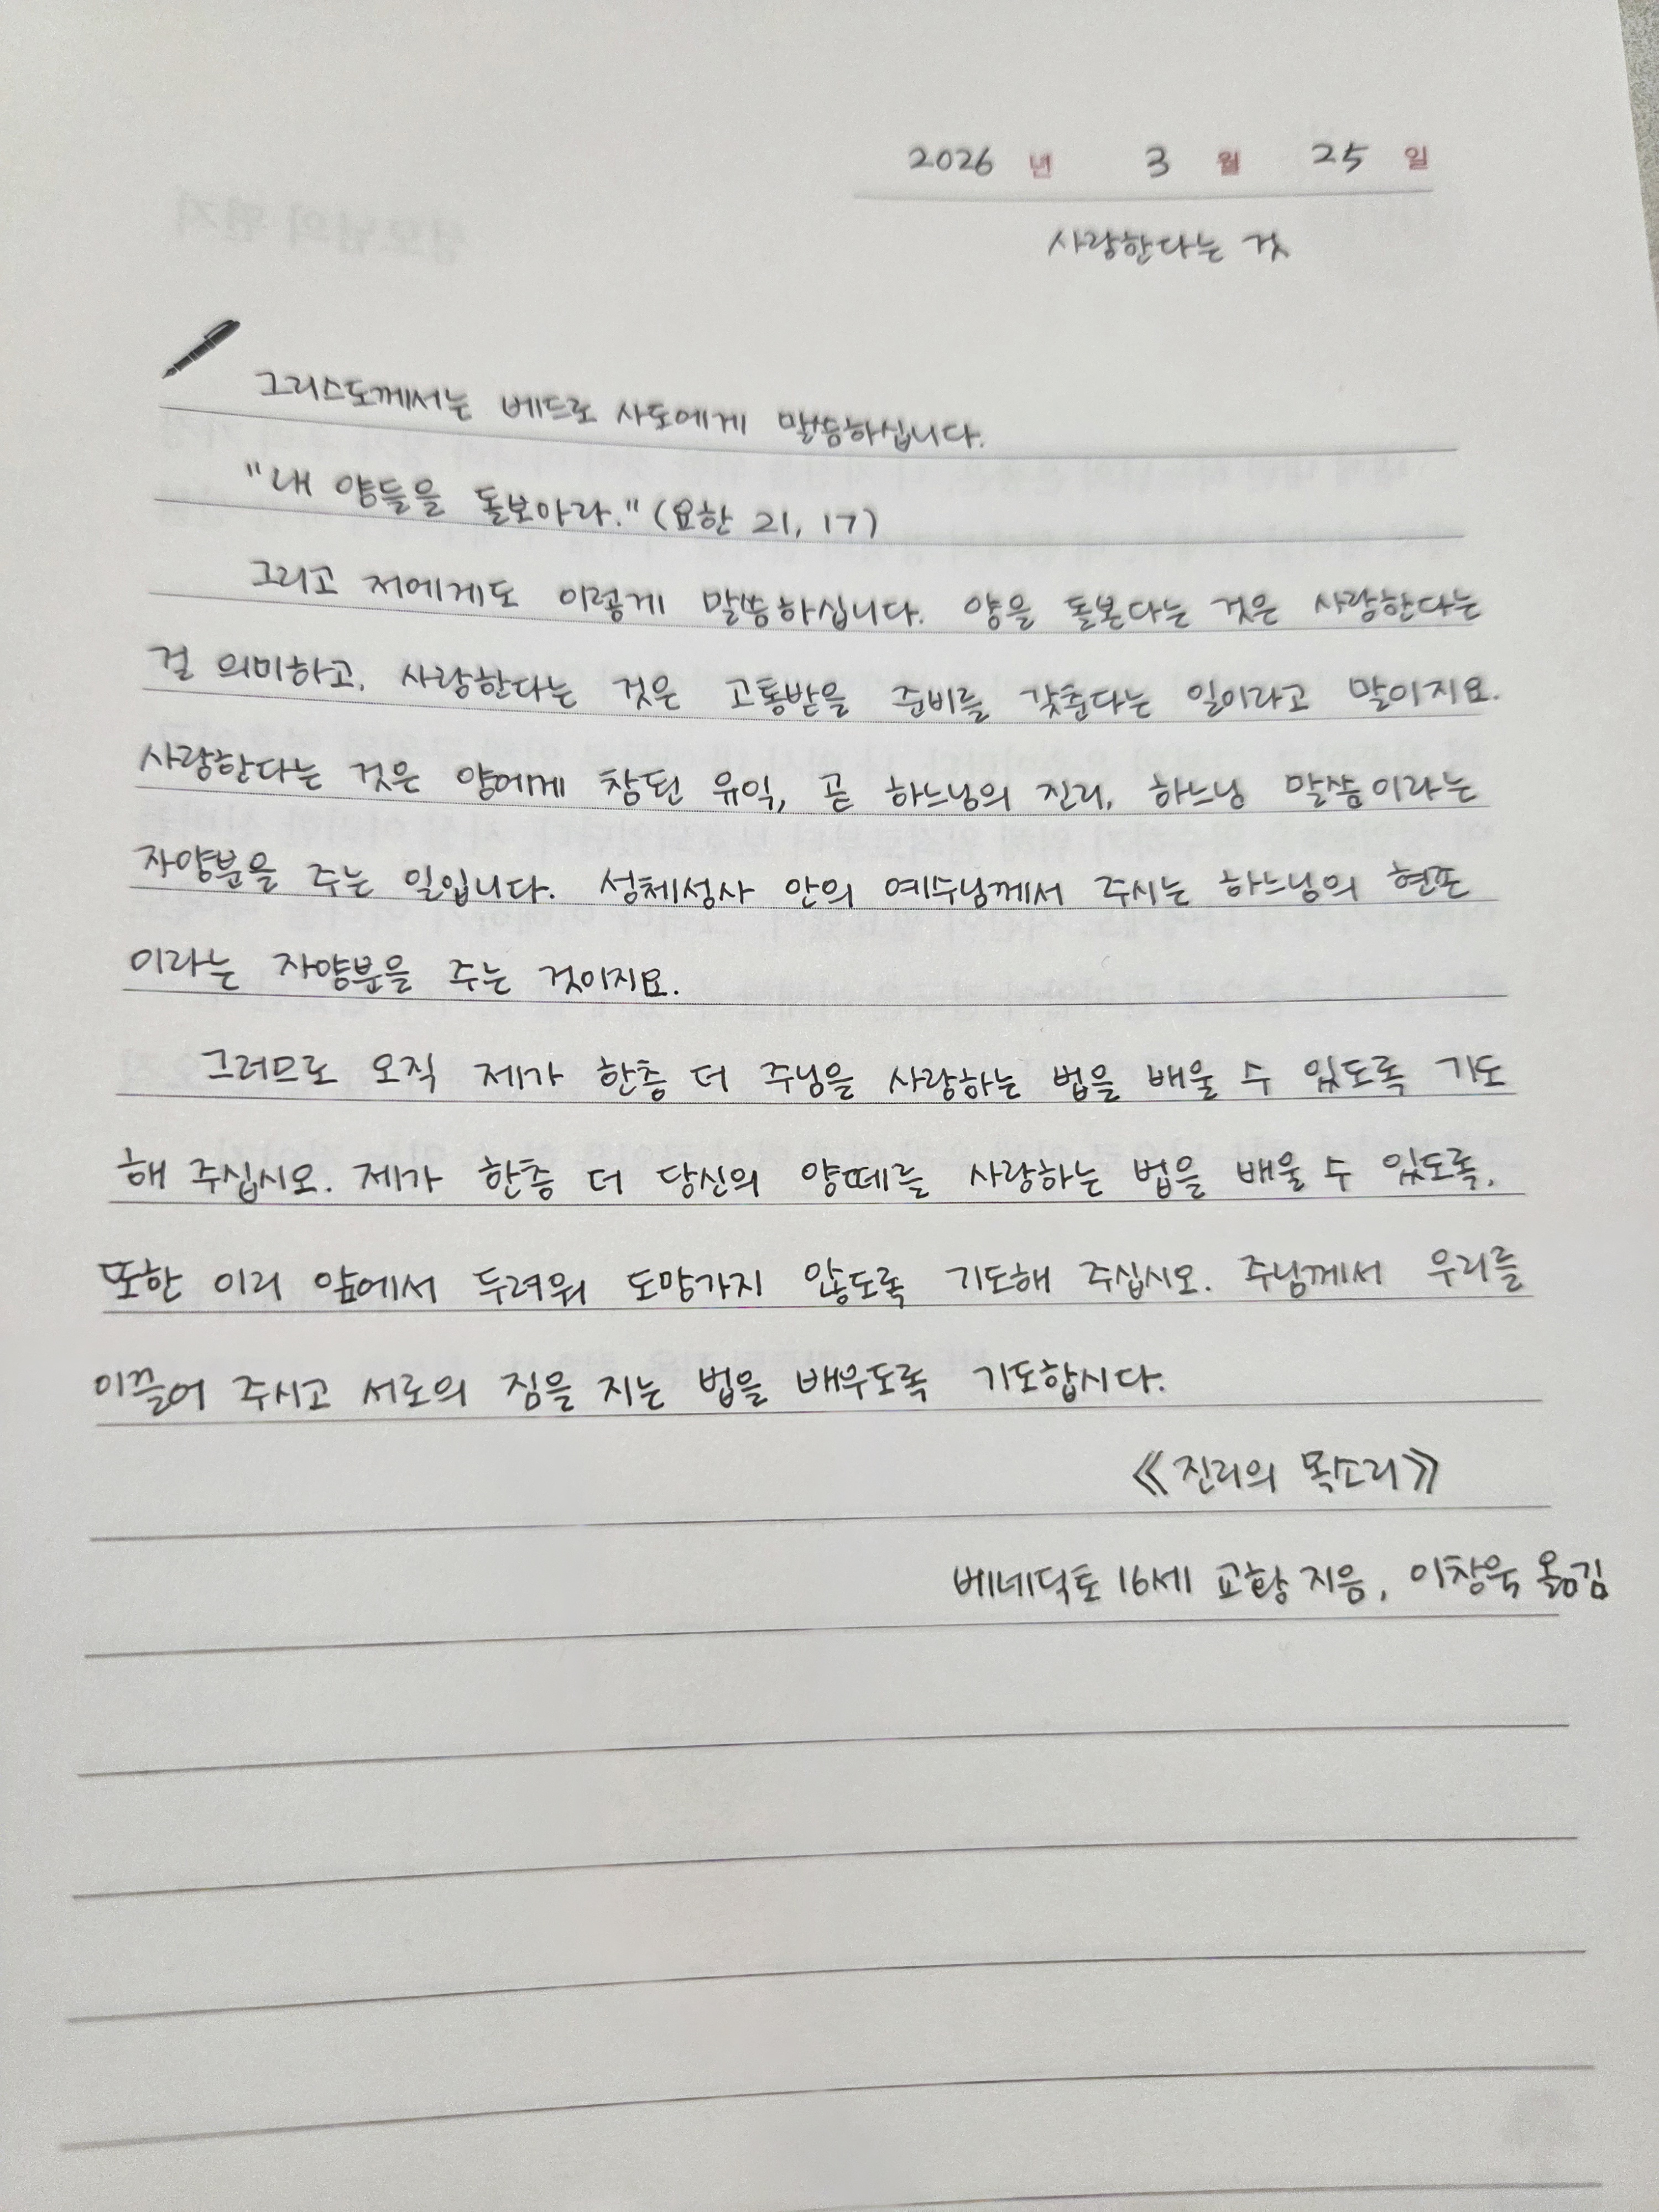 2026 년 3 월 25 일
사랑한다는 것
그리스도께서는 베드로 사도에게 말씀하십니다.
"내 양들을 돌보아라." (요한 21, 17)
그리고 저에게도 이렇게 말씀하십니다. 양을 돌본다는 것은 사랑한다는
걸 의미하고, 사랑한다는 것은 고통받을 준비를 갖춘다는 일이라고 말이지요.
사랑한다는 것은 양에게 참된 유익, 곧 하느님의 진리, 하느님 말씀이라는
자양분을 주는 일입니다. 성체성사 안의 예수님께서 주시는 하느님의 현존
이라는 자양분을 주는 것이지요.
그러므로 오직 제가 한층 더 주님을 사랑하는 법을 배울 수 있도록 기도
해 주십시오. 제가 한층 더 당신의 양떼를 사랑하는 법을 배울 수 있도록,
또한 이리 앞에서 두려워 도망가지 않도록 기도해 주십시오. 주님께서 우리를
이끌어 주시고 서로의 짐을 지는 법을 배우도록 기도합시다.
《진리의 목소리》
베네딕토 16세 교황 지음, 이창욱 옮김